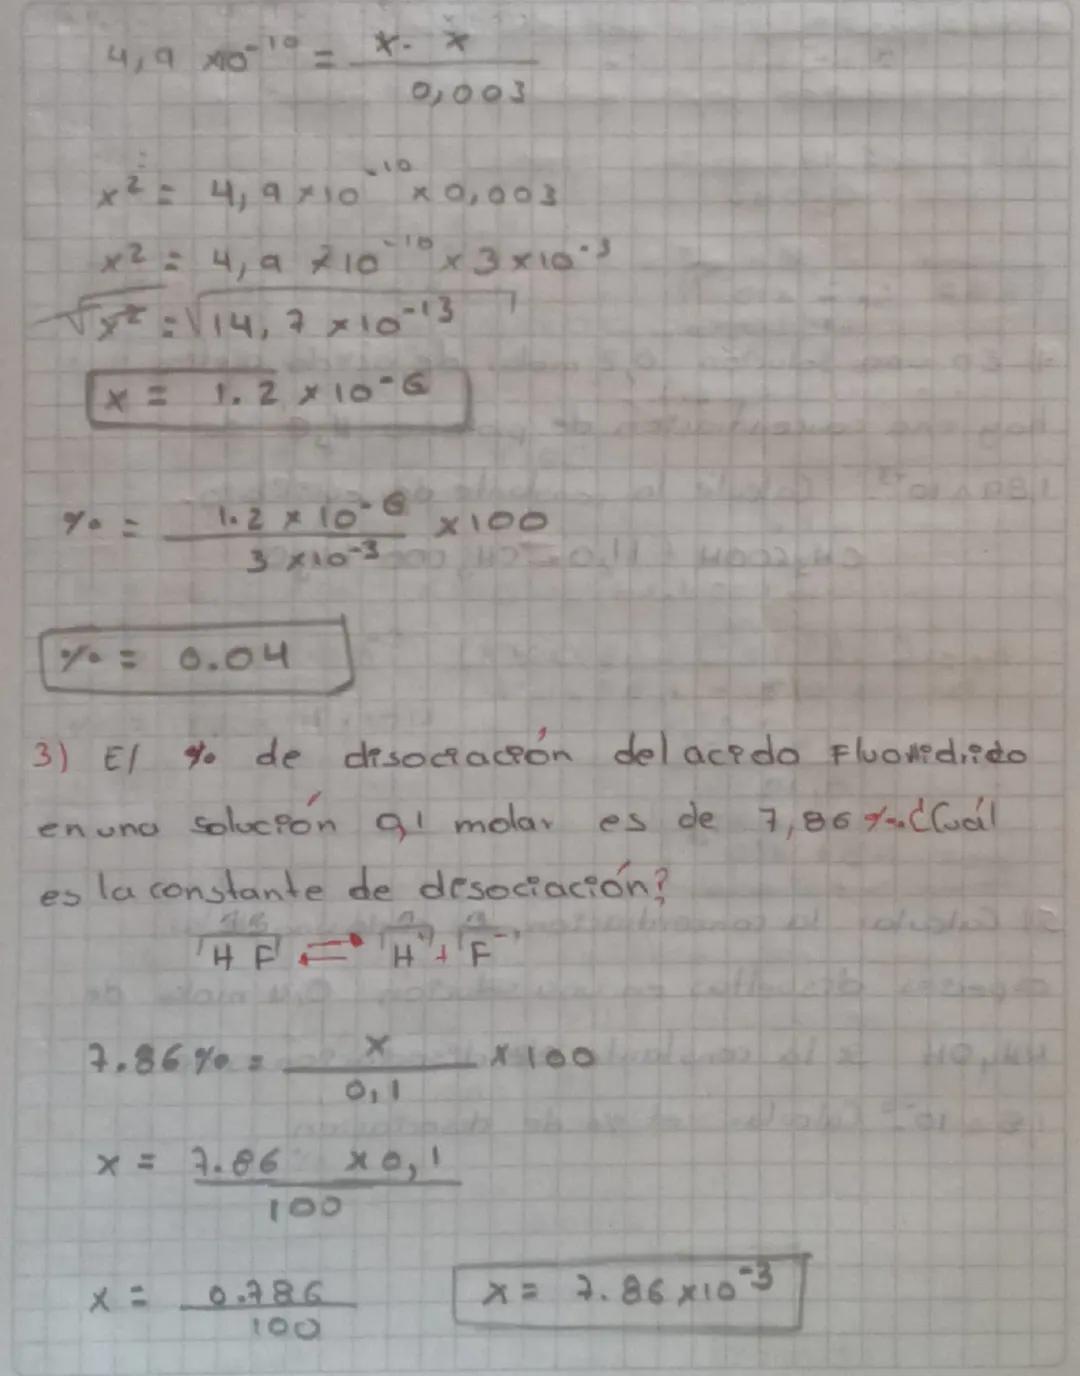 4,9 x10⁻¹⁰ = x. x / 0,003
x² = 4,9 x 10⁻¹⁰ x 0,003
x² = 4,9 x 10⁻¹⁰ x 3 x 10⁻³
√x² = √14,7 x 10⁻¹³
x = 1.2 x 10⁻⁶
% = 1.2 x 10⁻⁶ / 3 x10⁻³ x 100
% = 0.04
3) El % de disociación del acido Fluoridrido
en una solución 0,1 molar es de 7,86 % ¿Cuál
es la constante de disociación?
HF ⇌ H⁺ + F⁻
7.86 % = x / 0,1 x 100
x = 7.86 x 0,1 / 100
x = 0.786 / 100
x = 7.86 x 10⁻³